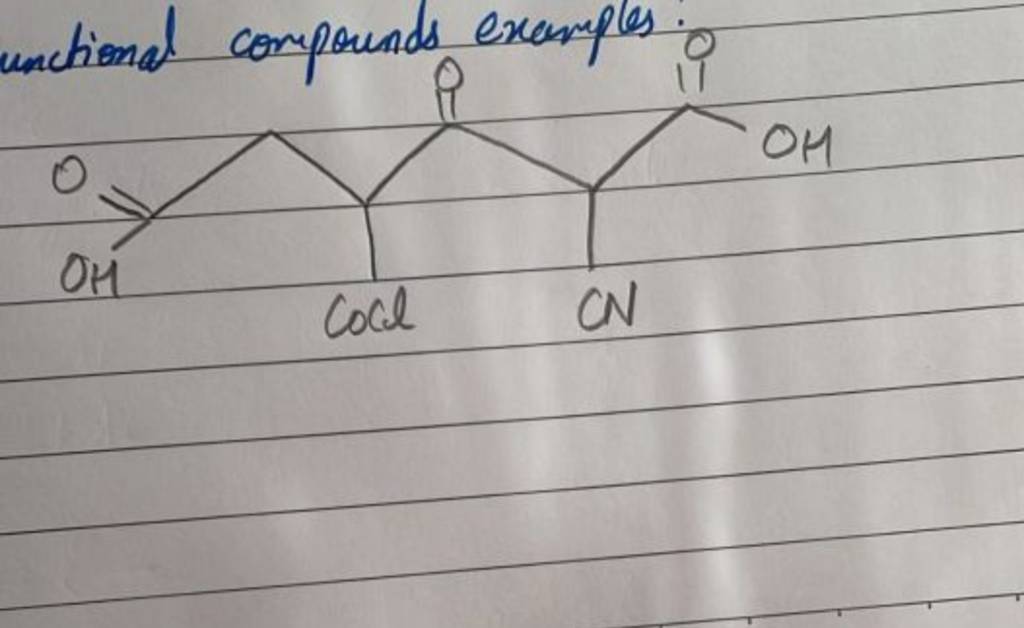 unctional compounds examples:
O
O
O
OH
OH
CoCl
CN